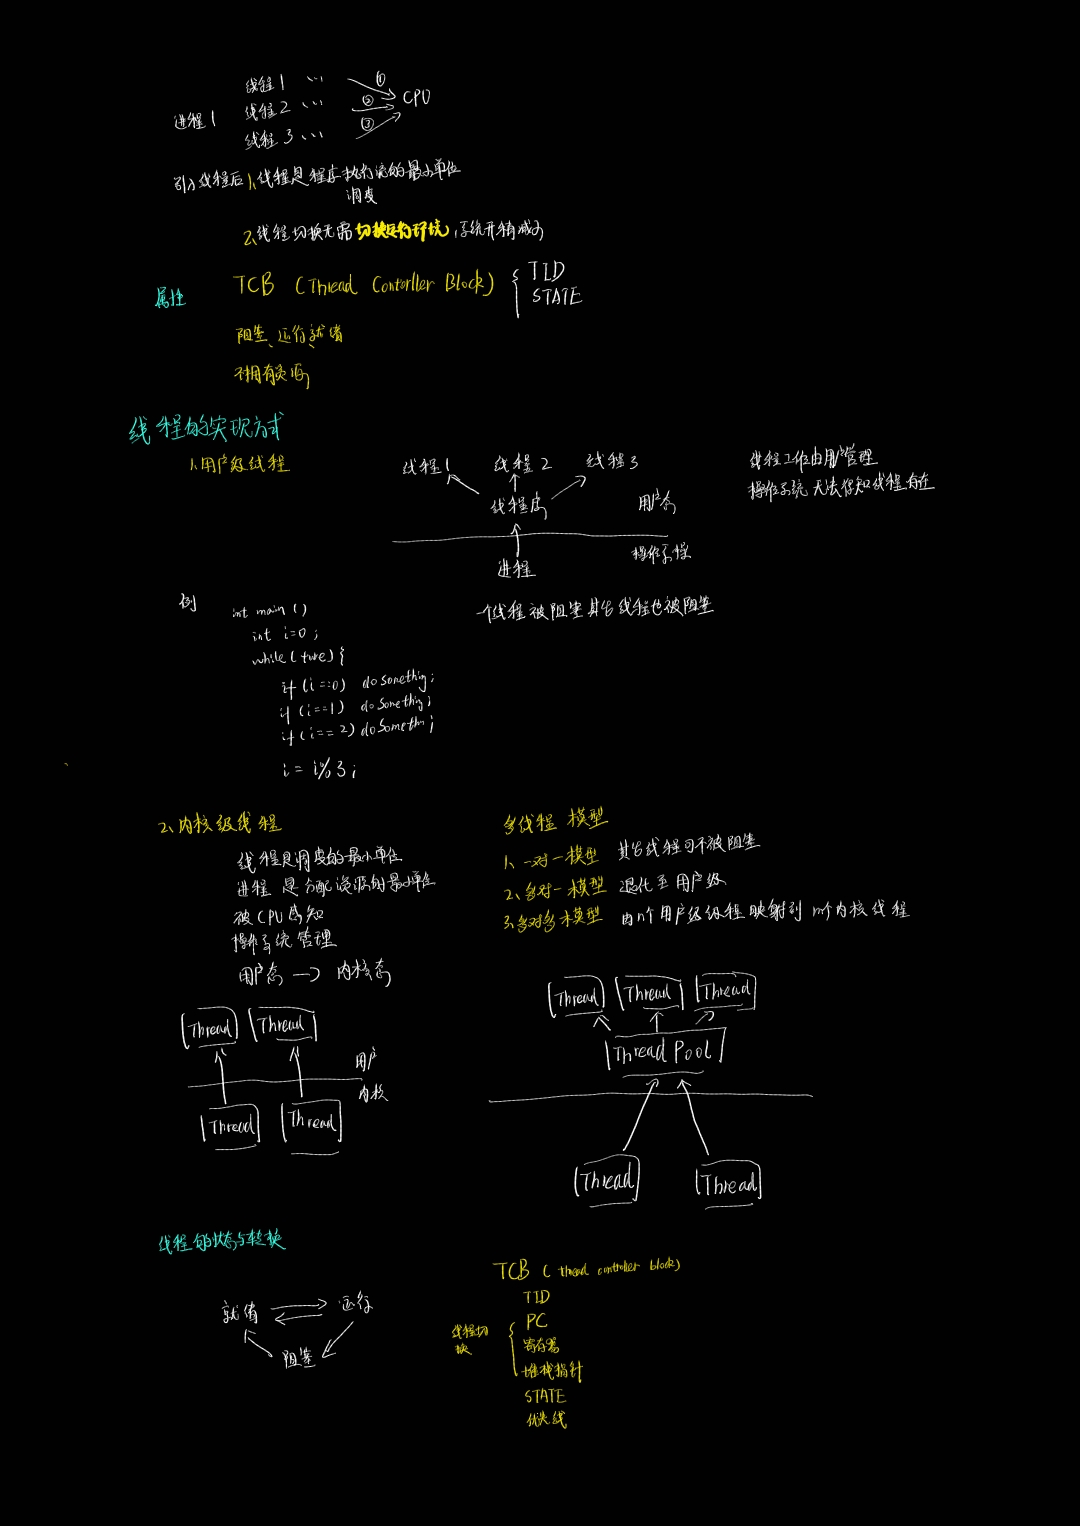 线程1 ... ①
进程1 线程2 ... ② CPU
线程3 ... ③
引入线程后 1、线程是程序执行流的最小单位
调度
2、线程切换无需切换运行环境,系统开销减小
属性 TCB (Thread Contorller Block) { TID
STATE
阻塞、运行、就绪
不拥有资源
线程的实现方式
1、用户级线程
线程1 线程2 线程3
线程库 用户态
进程
线程工作由用户管理
操作系统 无法感知线程存在
例
一个线程被阻塞 其它线程也被阻塞
int main ()
int i=0;
while(ture){
if (i==0) do something;
if (i==1) do something;
if (i==2) do somethn;
i= i%3;
2、内核级线程
线程是调度的最小单位
进程 是 分配资源的最小单位
被CPU感知
操作系统管理
用户态 → 内核态
Thread Thread
用户
内核
Thread Thread
多线程 模型
1、一对一模型 其它线程可不被阻塞
2、多对一模型 退化至用户级
3、多对多模型 由n个用户级线程映射到 n个内核线程
Thread Thread Thread
Thread Pool
Thread Thread
线程的状态与转换
就绪 运行
阻塞
TCB (thread controller block)
TID
线程切换 { PC
寄存器
堆栈指针
STATE
优先级